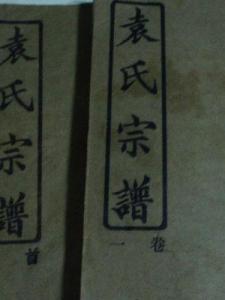 袁氏宗譜
首
袁氏宗譜
卷一